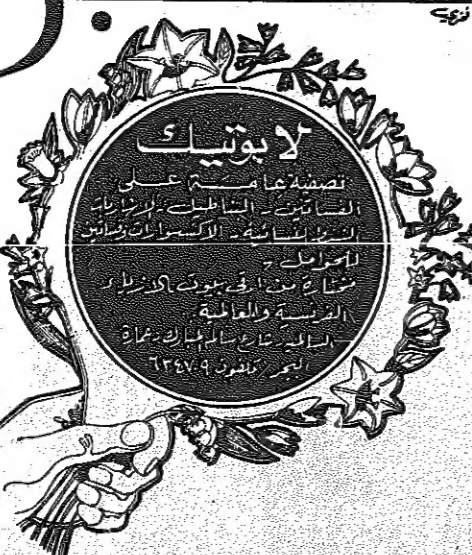 لا بوتيك
تصفية عامة على
الفساتين - البناطيل - الازارات
النسائية - الاكسسوارات وفساتين
للحوامل -
مختارة من ارقى بيوت الازياء
الفرنسية والعالمية.
السالمية - شارع سالم المبارك - عمارة
تلفون ٦٣٤٧٠٩